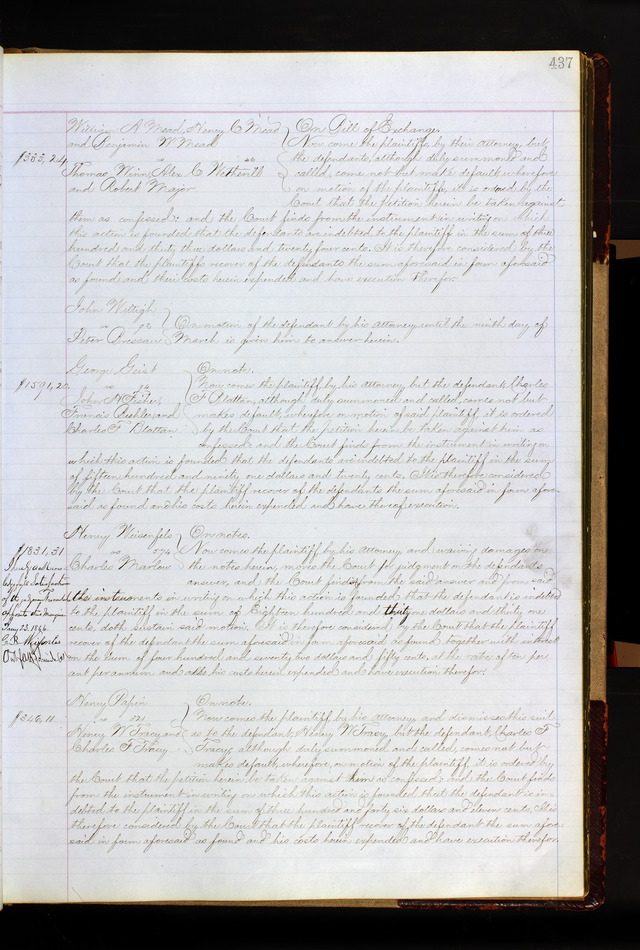 437
William A Mead, Henry C Mead } On Bill of Exchange.
and Benjamin W Mead Now come the plaintiffs, by their attorney but
$333,24 vs the defendants, although duly summoned and
Thomas Winn, Alex C called, come not but make default wherefore
and Robert Major on motion of the plaintiffs, it is ordered by the
Court that the petition herein be taken against
them as confessed: and the Court finds from the instrument in writing on which
this action is founded that the defendants are indebted to the plaintiff in the sum of three
hundred and thirty three dollars and twenty four cents. It is therefore considered by the
Court that the plaintiffs recover of the defendants the sum aforesaid in form aforesaid
as found and their costs herein expended and have execution therefor.
John
vs On motion of the defendant by his attorney until the ninth day of
Peter March is given him to answer herein.
George Geist } On note.
$1591,20 vs 34 Now comes the plaintiff by his attorney, but the defendants, Charles
John H Fisher, F Blattau, although duly summoned and called, comes not but
Francis and makes default, wherefore on motion of said plaintiff it is ordered
Charles F Blattau by the Court that the petition herein be taken against him as
confessed: and the Court finds from the instrument in writing on
which this action is founded that the defendants are indebted to the plaintiff in the sum
of fifteen hundred and ninety one dollars and twenty cents. It is therefore considered
by the Court that the plaintiff recover of the defendants the sum aforesaid in form afore
said as found and his costs herein expended and have thereof execution.
Henry Weisenfels } On notes.
$1831,31 vs 574 Now comes the plaintiff by his attorney and waiving damages on
Charles Marlow the notes herein, moves the Court for judgment on the defendants
answer, and the Court finds from the said answer and from said
the instruments in writing on which this action is founded that the defendant is indebted
to the plaintiff in the sum of Eighteen hundred and thirty one dollars and thirty one
cents, doth sustain said motion. It is therefore considered by the Court that the plaintiff
recover of the defendant the sum aforesaid in form aforesaid as found together with interest
on the sum of four hundred and seventy two dollars and fifty cents, at the rate of ten per
cent per annum and also his costs herein expended and have execution therefor.
Henry Papin } On note.
$346,11 vs Now comes the plaintiff by his attorney and dismisses this suit
Henry W Tracy and as to the defendant, Henry W Tracy, but the defendant, Charles F
Charles F Tracy Tracy, although duly summoned and called, comes not but
makes default, wherefore, on motion of the plaintiff, it is ordered by
the Court that the petition herein be taken against him as confessed: and the Court finds
from the instrument in writing on which this action is founded that the defendant is in-
debted to the plaintiff in the sum of three hundred and forty six dollars and eleven cents. It is
therefore considered by the Court that the plaintiff recover of the defendant the sum afore
said in form aforesaid as found and his costs herein expended and have execution therefor.